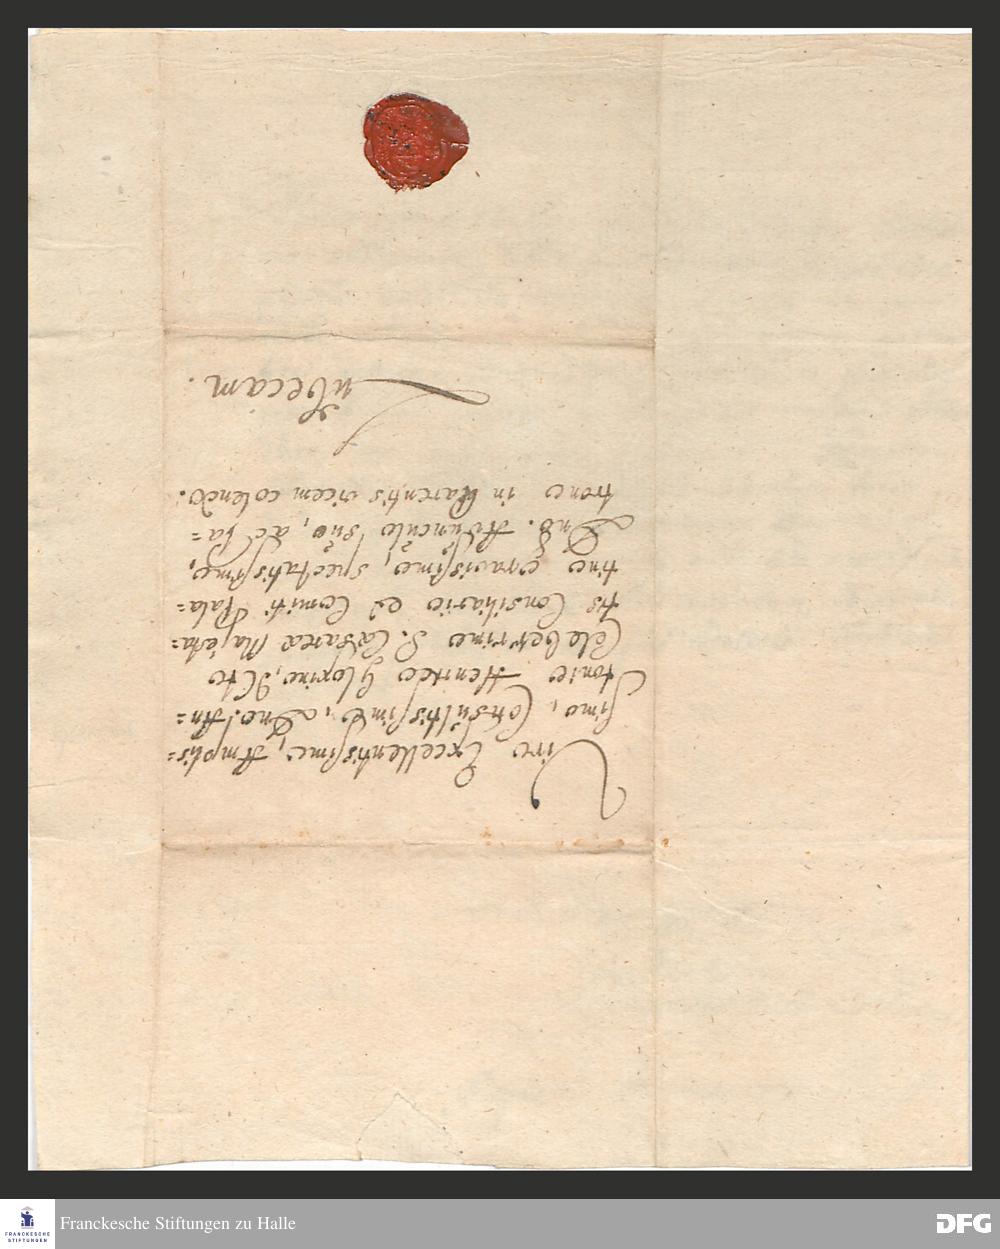 Viro Excellentissimo, Amplis=
simo, Consultissimo, Dno. An=
tonio Henrico Gloxino, JCto
Celeberrimo S. Caesareae Majesta=
tis Consiliario et Comiti Pala=
tino gravissimo, spectatissimo,
Dno. Avunculo suo, ac Pa=
trono in Parentis vicem colendo.
Lubecam.
FRANCKESCHE
STIFTUNGEN
Franckesche Stiftungen zu Halle
DFG